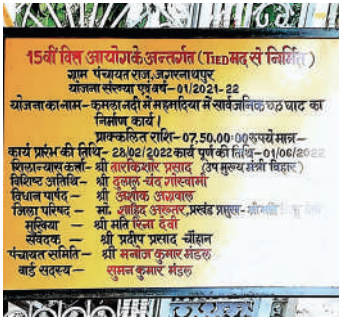 15वीं वित्त आयोग के अन्तर्गत (TIED मद से निर्मित)
ग्राम पंचायत राज, जगरनाथपुर
योजना संख्या एवं वर्ष-01/2021-22
योजना का नाम- कमला नदी में महमदिया में सार्वजनिक छठ घाट का
निर्माण कार्य।
प्राक्कलित राशि-07,50,00=00 रुपये मात्र-
कार्य प्रारंभ की तिथि-28/02/2022 कार्य पूर्ण की तिथि-01/06/2022
शिलान्यास कर्त्ता- श्री तारकिशोर प्रसाद (उप मुख्य मंत्री बिहार)
विशिष्ट अतिथि- श्री दुलाल चंद गोस्वामी
विधान पार्षद- श्री अशोक अग्रवाल
जिला परिषद- मो. शाहिद अख्तर, प्रखंड प्रमुख- देवी
मुखिया - श्री मति रिना देवी
संवेदक - श्री प्रदीप प्रसाद -चौहान
पंचायत समिति- श्री मनोज कुमार मंडल
वार्ड सदस्य- सुमन कुमार मंडल